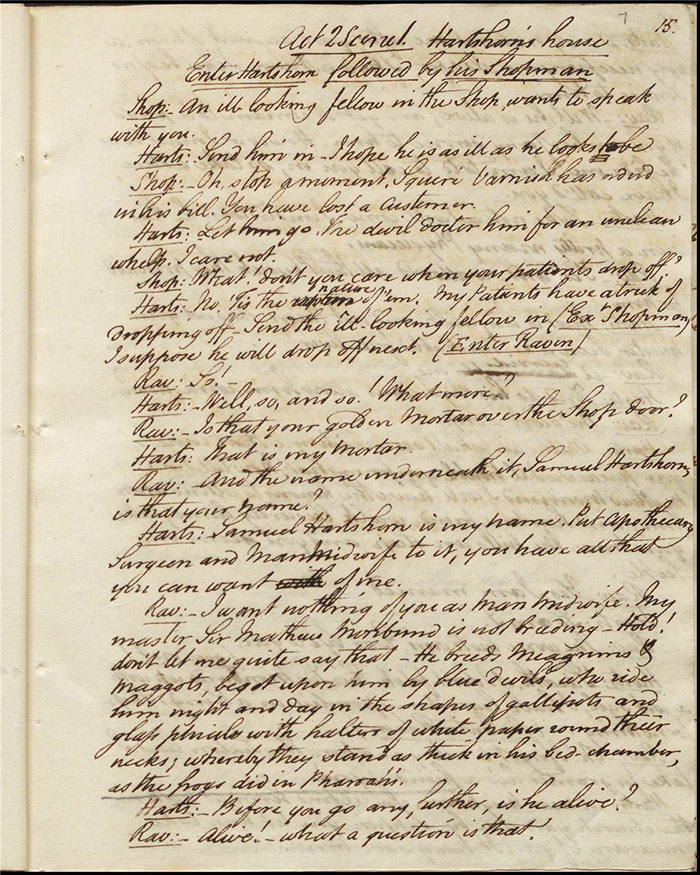 15.
Act 2 Scene 1. Hartshorn's house
Enter Hartshorn followed by his Shopman
Shop:- An ill looking fellow in the Shop, wants to speak
with you.
Harts: Send him in - I hope he is as ill as he looks to be
Shop:- Oh, stop a moment. Squere Varnish has order'd
in his bill. You have lost a Customer.
Harts: Let him go. The devil doctor him for an unclean
whelp. I care not.
Shop: What! don't you care when your patients drop off?
Harts: No. 'Tis the native of 'em. My Patients have a trick of
Dropping off - Send the ill-looking fellow in (Ext Shopman)
I suppose he will drop off next. (Enter Raven)
Rav: So! -
Harts:- Well, so, and so! What more?
Rav:- Is that your golden Mortar over the Shop door?
Harts: That is my Mortar.
Rav:- And the name underneath it, Samuel Hartshorn,
is that your name?
Harts: Samuel Hartshorn is my name. Put Apothecary
Surgeon and Man Midwife to it, you have all that
you can want of me.
Rav:- I want nothing of you as Man Midwife. My
master Sir Mathew Moribund is not breeding - Hold!
don't let me quite say that - He breeds Meagrims &
Maggots, begot upon him by blue devils, who ride
him night and day in the shapes of gallipots and
glass phials with halters of white paper round their
necks; whereby they stand as thick in his bed-chamber,
as the frogs did in Pharoah's.
Harts:- Before you go any further, is he alive?
Rav:- Alive! - what a question is that.